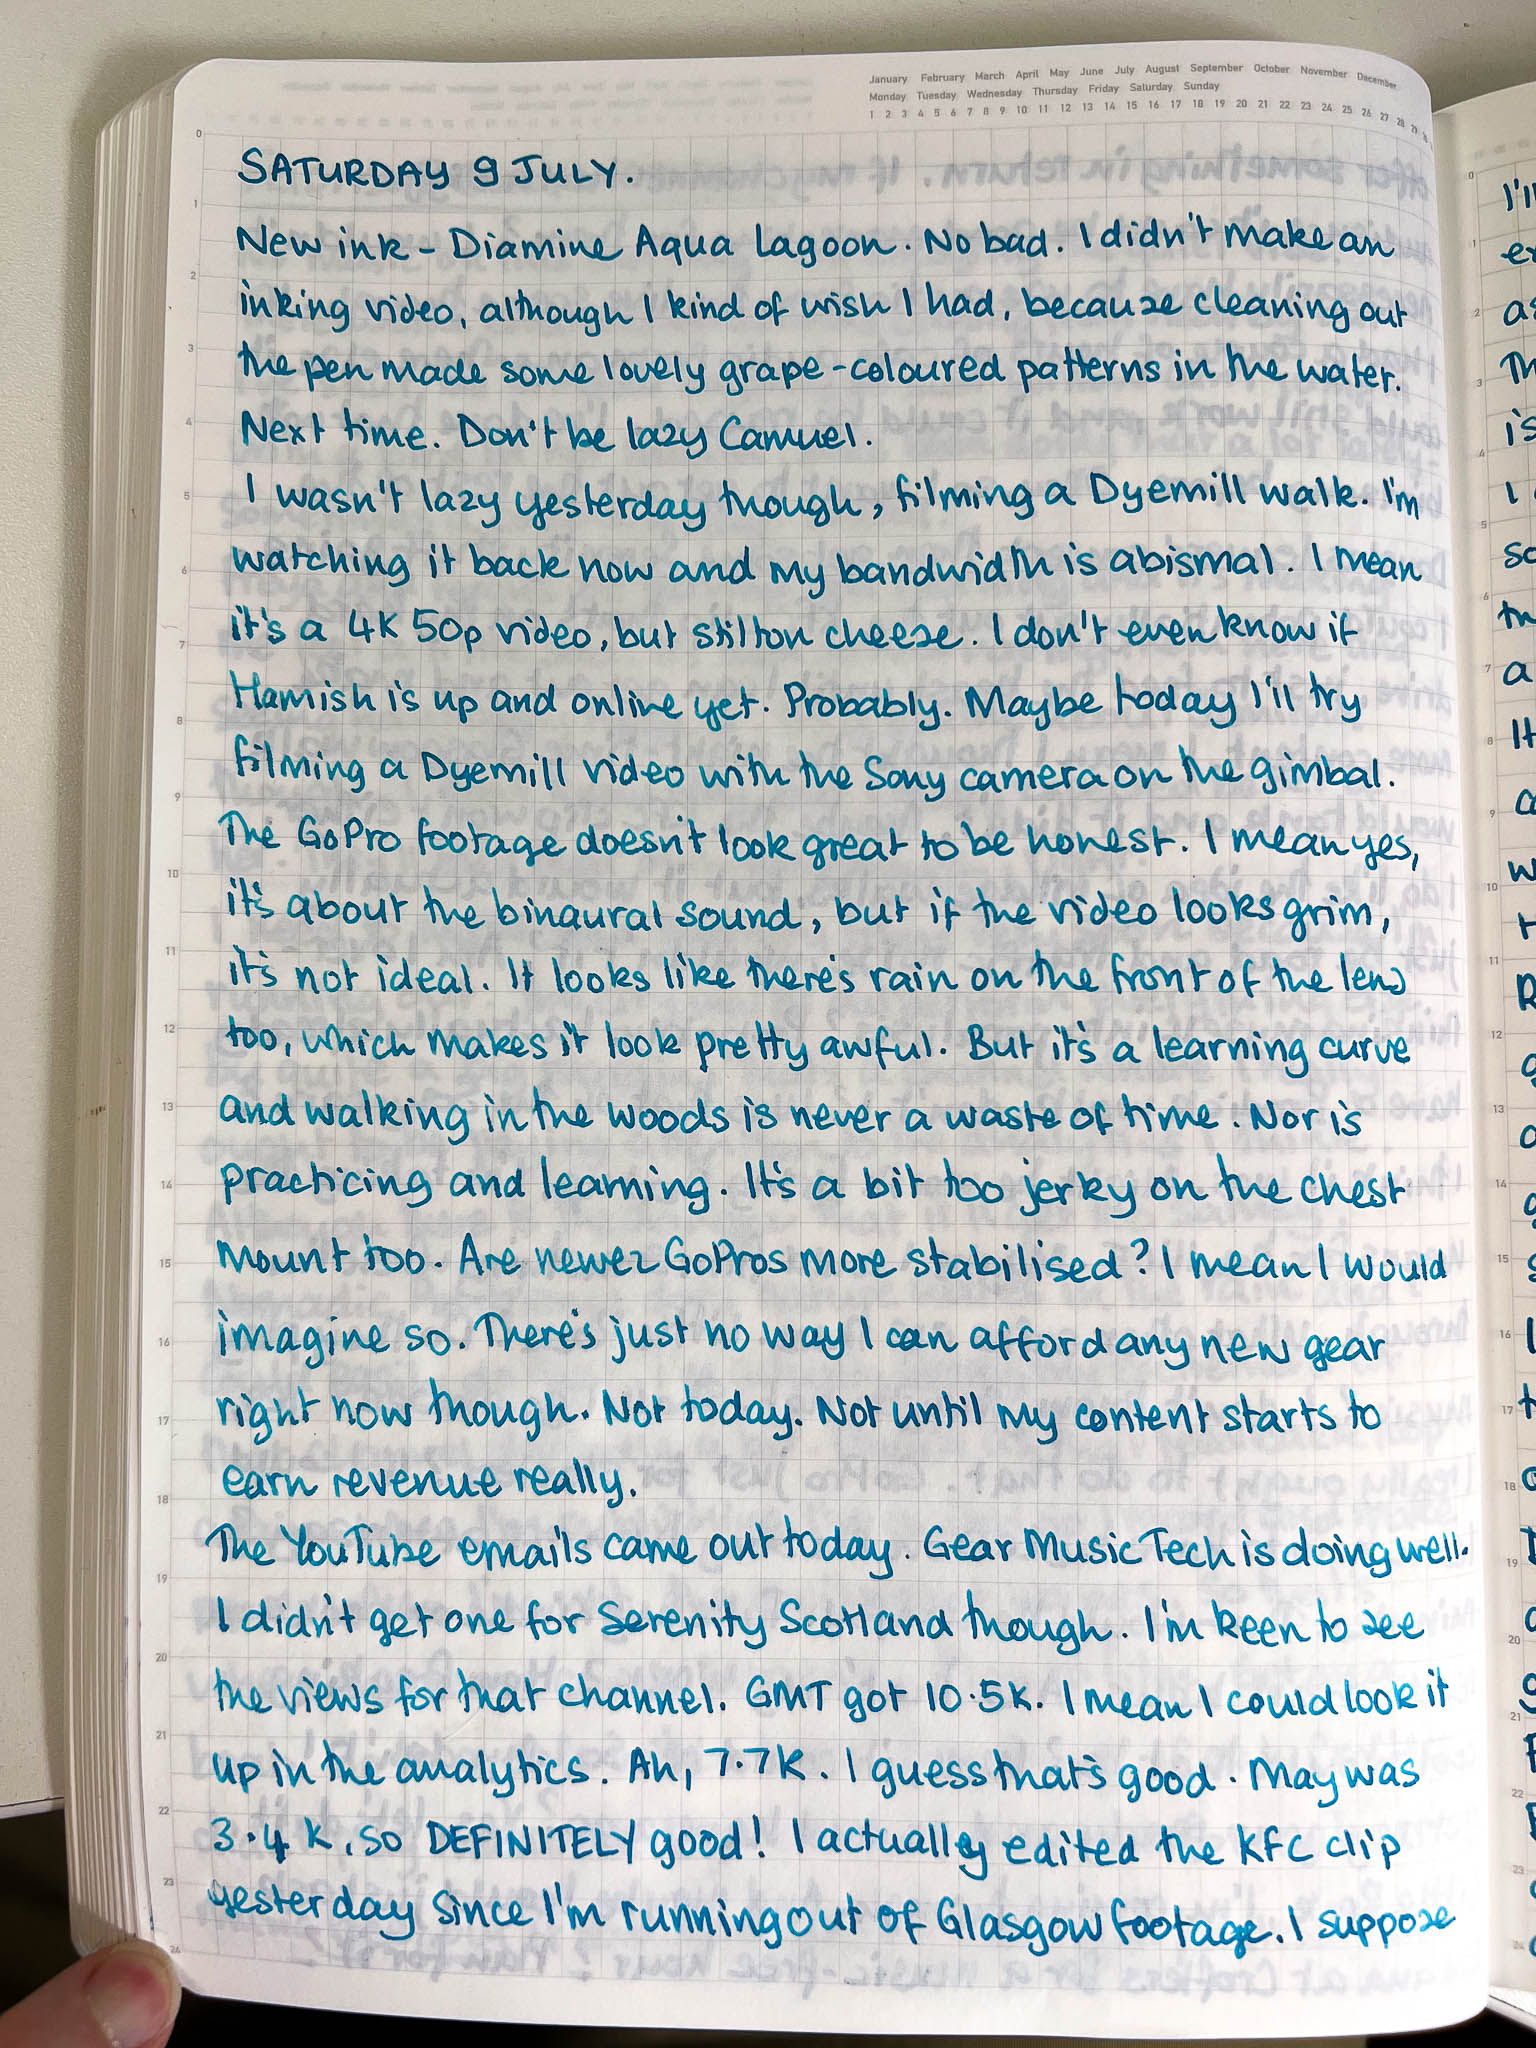 January February March April May June July August September October November December
Monday Tuesday Wednesday Thursday Friday Saturday Sunday
1 2 3 4 5 6 7 8 9 10 11 12 13 14 15 16 17 18 19 20 21 22 23 24 25 26 27 28 29
SATURDAY 9 JULY.
New ink - Diamine Aqua Lagoon. No bad. I didn't make an
inking video, although I kind of wish I had, because cleaning out
the pen made some lovely grape-coloured patterns in the water.
Next time. Don't be lazy Camuel.
I wasn't lazy yesterday though, filming a Dyemill walk. I'm
watching it back now and my bandwidth is abismal. I mean
it's a 4K 50p video, but stilton cheese. I don't even know if
Hamish is up and online yet. Probably. Maybe today I'll try
filming a Dyemill video with the Sony camera on the gimbal.
The GoPro footage doesn't look great to be honest. I mean yes,
it's about the binaural sound, but if the video looks grim,
it's not ideal. It looks like there's rain on the front of the lens
too, which makes it look pretty awful. But it's a learning curve
and walking in the woods is never a waste of time. Nor is
practicing and learning. It's a bit too jerky on the chest
mount too. Are newer GoPros more stabilised? I mean I would
imagine so. There's just no way I can afford any new gear
right now though. Not today. Not until my content starts to
earn revenue really.
The YouTube emails came out today. Gear Music Tech is doing well.
I didn't get one for Serenity Scotland though. I'm keen to see
the views for that channel. GMT got 10.5K. I mean I could look it
up in the analytics. Ah, 7.7K. I guess that's good. May was
3.4K, so DEFINITELY good! I actually edited the KFC clip
yesterday since I'm running out of Glasgow footage. I suppose